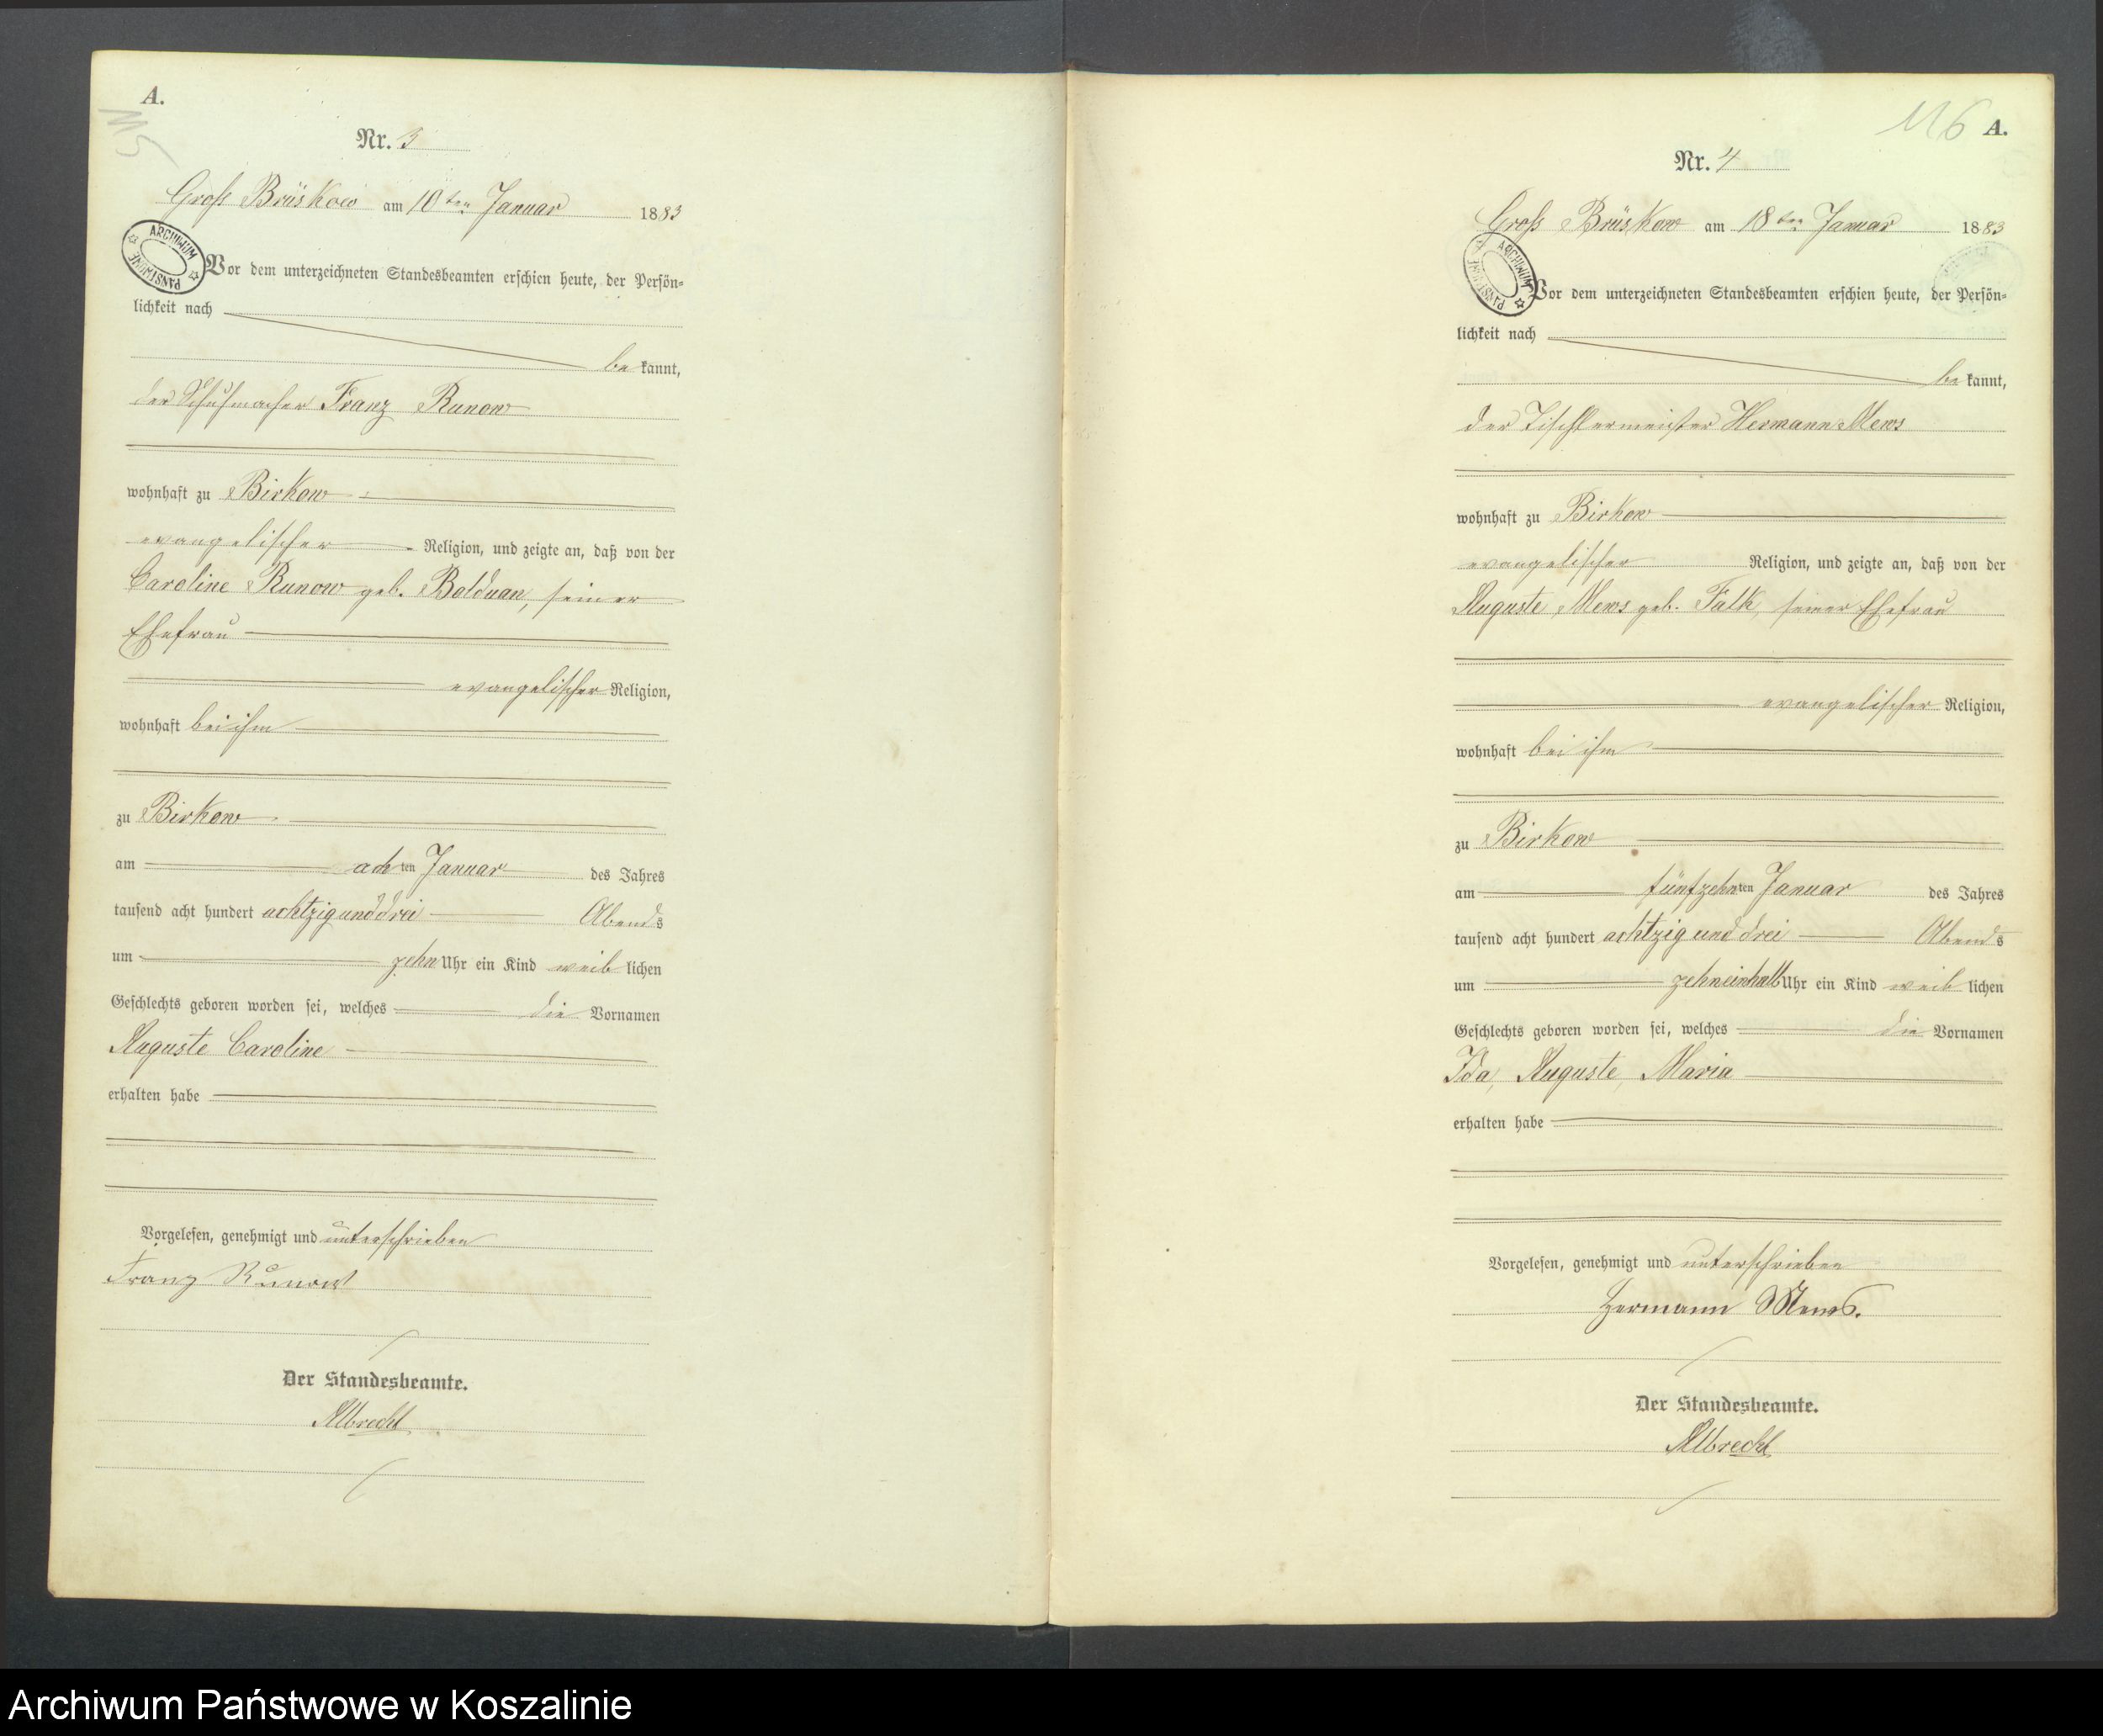 A.
115
Nr. 3
Groß Brüskow am 10ten Januar 1883
ARCHIWUM PAŃSTWOWE
Vor dem unterzeichneten Standesbeamten erschien heute, der Persön-
lichkeit nach
be kannt,
der Schuhmacher Franz Runow
wohnhaft zu Birkow
evangelischer Religion, und zeigte an, daß von der
Caroline Runow geb. Bolduan, seiner
Ehefrau
evangelischer Religion,
wohnhaft bei ihm
zu Birkow
am achten Januar des Jahres
tausend acht hundert achtzig und drei Abends
um zehn Uhr ein Kind weiblichen
Geschlechts geboren worden sei, welches die Vornamen
Auguste Caroline
erhalten habe
Vorgelesen, genehmigt und unterschrieben
Franz Runow
Der Standesbeamte.
Albrecht
116 A.
Nr. 4
Groß Brüskow am 18ten Januar 1883
ARCHIWUM PAŃSTWOWE
Vor dem unterzeichneten Standesbeamten erschien heute, der Persön-
lichkeit nach
be kannt,
der Tischlermeister Hermann Mews
wohnhaft zu Birkow
evangelischer Religion, und zeigte an, daß von der
Auguste Mews geb. Falk, seiner Ehefrau
evangelischer Religion,
wohnhaft bei ihm
zu Birkow
am fünfzehnten Januar des Jahres
tausend acht hundert achtzig und drei Abends
um zehneinhalb Uhr ein Kind weiblichen
Geschlechts geboren worden sei, welches die Vornamen
Ida, Auguste, Maria
erhalten habe
Vorgelesen, genehmigt und unterschrieben
Hermann Mews.
Der Standesbeamte.
Albrecht
Archiwum Państwowe w Koszalinie